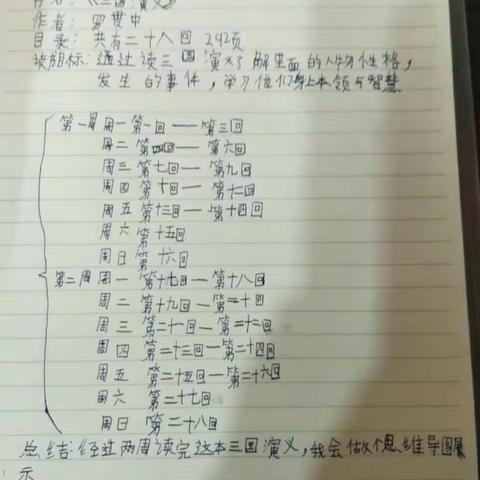 书名:《三国演义》
作者:罗贯中
目录:共有二十八回 292页
读明标:通过读三国演义了解里面的人物性格,
发生的事件,学习他们身上本领与智慧
第一周 周一 第一回——第三回
周二 第四回——第六回
周三 第七回——第九回
周四 第十回——第十二回
周五 第十三回——第十四回
周六 第十五回
周日 第十六回
第二周 周一 第十七回—第十八回
周二 第十九回—第二十回
周三 第二十一回—第二十二回
周四 第二十三回—第二十四回
周五 第二十五回—第二十六回
周六 第二十七回
周日 第二十八回
总结:经过两周读完这本三国演义,我会做个思维导图展
示